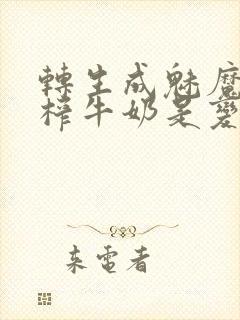 轉生成魅魔
榨牛奶是變
來電者